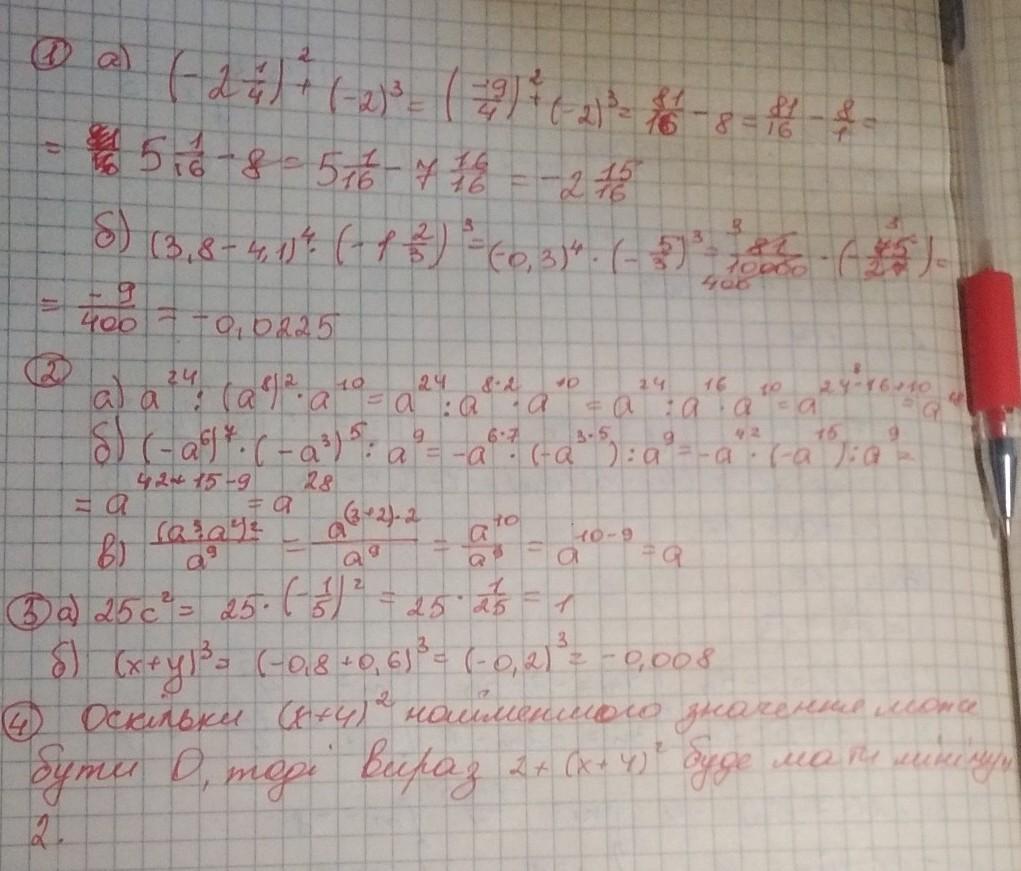 ① а) (-2 1/4)² + (-2)³ = (-9/4)² + (-2)³ = 81/16 - 8 = 81/16 - 8/1 =
= 5 1/16 - 8 = 5 1/16 - 7 16/16 = -2 15/16
б) (3,8 - 4,1)⁴ · (-1 2/3)³ = (-0,3)⁴ · (-5/3)³ = 81/10000 · (-75/27) =
= -9/400 = -0,0225
② а) a²⁴ : (a⁸)² · a¹⁰ = a²⁴ : a⁸·² · a¹⁰ = a²⁴ : a¹⁶ · a¹⁰ = a²⁴⁻¹⁶⁺¹⁰ = a
б) (-a⁶)⁷ · (-a³)⁵ : a⁹ = -a⁶·⁷ · (-a³·⁵) : a⁹ = -a⁴² · (-a¹⁵) : a⁹ =
= a⁴²⁺¹⁵⁻⁹ = a²⁸
в) (a³a⁴)²/a⁹ = a⁽³⁺²⁾·²/a⁹ = a¹⁰/a⁹ = a¹⁰⁻⁹ = a
③ а) 25c² = 25 · (-1/5)² = 25 · 1/25 = 1
б) (x+y)³ = (-0,8+0,6)³ = (-0,2)³ = -0,008
④ Оскільки (x+4)² найменшого значення може
бути 0, тоді вираз 2+(x+4)² буде мати мінімум
2.